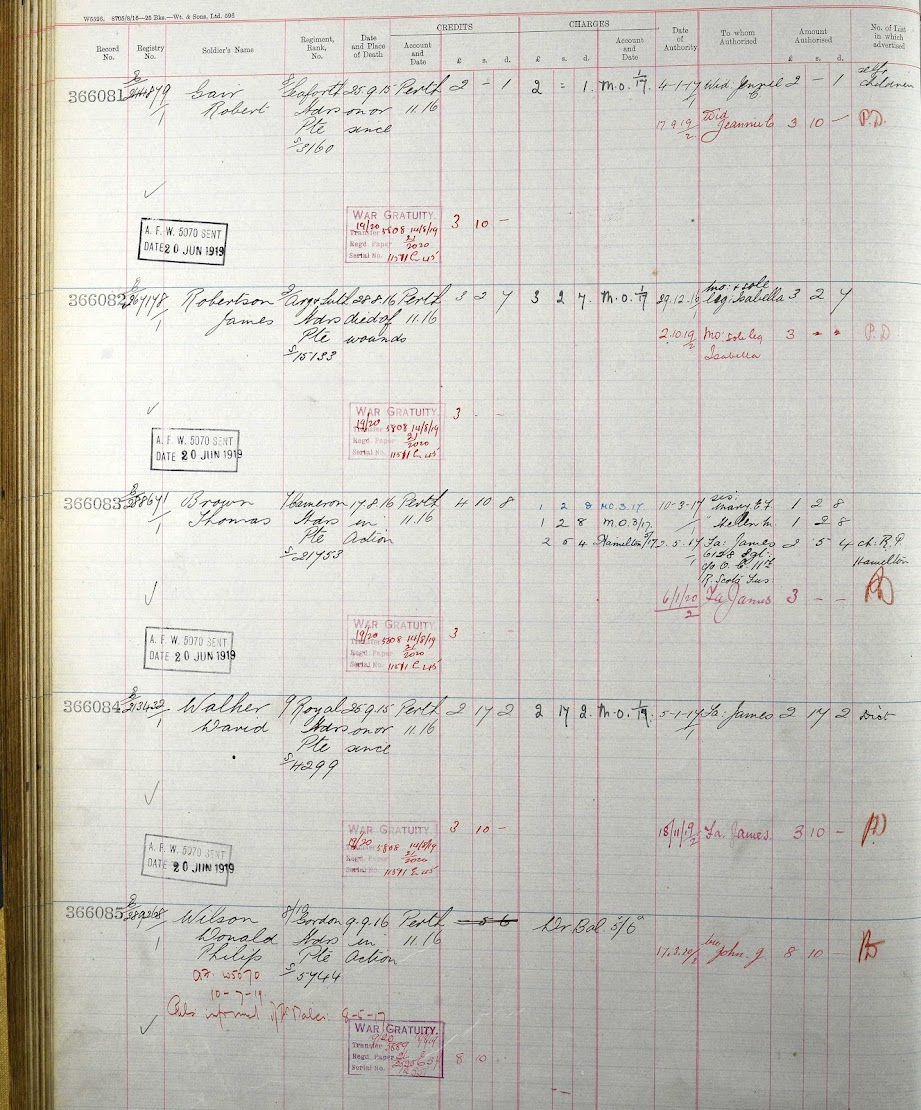 W5526. 8705/8/16—25 Bks.—Wt. & Sons, Ltd. 596
CREDITS CHARGES
Record No. Registry No. Soldier's Name Regiment, Rank, No. Date and Place of Death Account and Date £ s. d. £ s. d. Account and Date Date of Authority To whom Authorised Amount Authorised £ s. d. No. of List in which advertised
self
366081 Seaforth 25.9.15 Perth 2 - 1 2 - 1 M.O. 1/17 4-1-17 Wid. 2 - 1 Children
Robert Hdrs on or 11.16
Pte since 17.9.19/2 Wid Jeannie C 3 10 - P.D.
S/3160
WAR GRATUITY. 3 10 -
19/20
Transfer 5808 14/8/19
Regd. Paper 21/2020
Serial No. 11511 E 45
A. F. W. 5070 SENT
DATE 20 JUN 1919
mo: + sole
366082 Robertson Arg & Suth 28.8.16 Perth 3 2 7 3 2 7. M.O. 1/17 29.12.16 leg: Isabella 3 2 7
James Hdrs died of 11.16
Pte wounds 2.10.19/2 Mo: sole leg 3 - - P.D
S/15133 Isabella
WAR GRATUITY. 3 - -
19/20
Transfer 5808 14/8/19
Regd. Paper 21/2020
Serial No. 11511 E 45
A. F. W. 5070 SENT
DATE 20 JUN 1919
366083 Brown 7 Cameron 17.8.16 Perth 4 10 8 1 2 8 M.O. 3.17 10-3-17 sis: Mary E F 1 2 8
Thomas Hdrs in 11.16 1 2 8 M.O. 3/17 " Helen M. 1 2 8
Pte Action 2 5 4 Hamilton 5/17 2.5.17 Fa: James 2 5 4 ch. R.P.
S/21753 6128 Sgt: Hamilton
c/o O.C. 11th
R. Scots Fus
6/1/20/2 Fa James 3 - -
WAR GRATUITY. 3
19/20
Transfer 5808 14/8/19
Regd. Paper 21/2020
Serial No. 11511 E 45
A. F. W. 5070 SENT
DATE 20 JUN 1919
366084 213432 Walker 9 Royal 25.9.15 Perth 2 17 2 2 17 2. M.O. 1/17 5-1-17 Fa: James 2 17 2 Dist
David Hdrs on or 11.16
Pte since
S/4299
WAR GRATUITY. 3 10 - 18/11/19/2 Fa. James. 3 10 -
19/20
Transfer 5808 14/8/19
Regd. Paper 21/2020
Serial No. 11511 E 45
A. F. W. 5070 SENT
DATE 20 JUN 1919
366085 289268 Wilson 8/10 Gordon 9.9.16 Perth - 5 6 Dr. Bal 5/6
Donald Hdrs in 11.16
Philip Pte Action 17.3.20/2 John. J 8 10 -
A.F. W5070 S/5744
10-7-19
informed 8-5-17
WAR GRATUITY.
Transfer
Regd. Paper
Serial No.
8 10 -